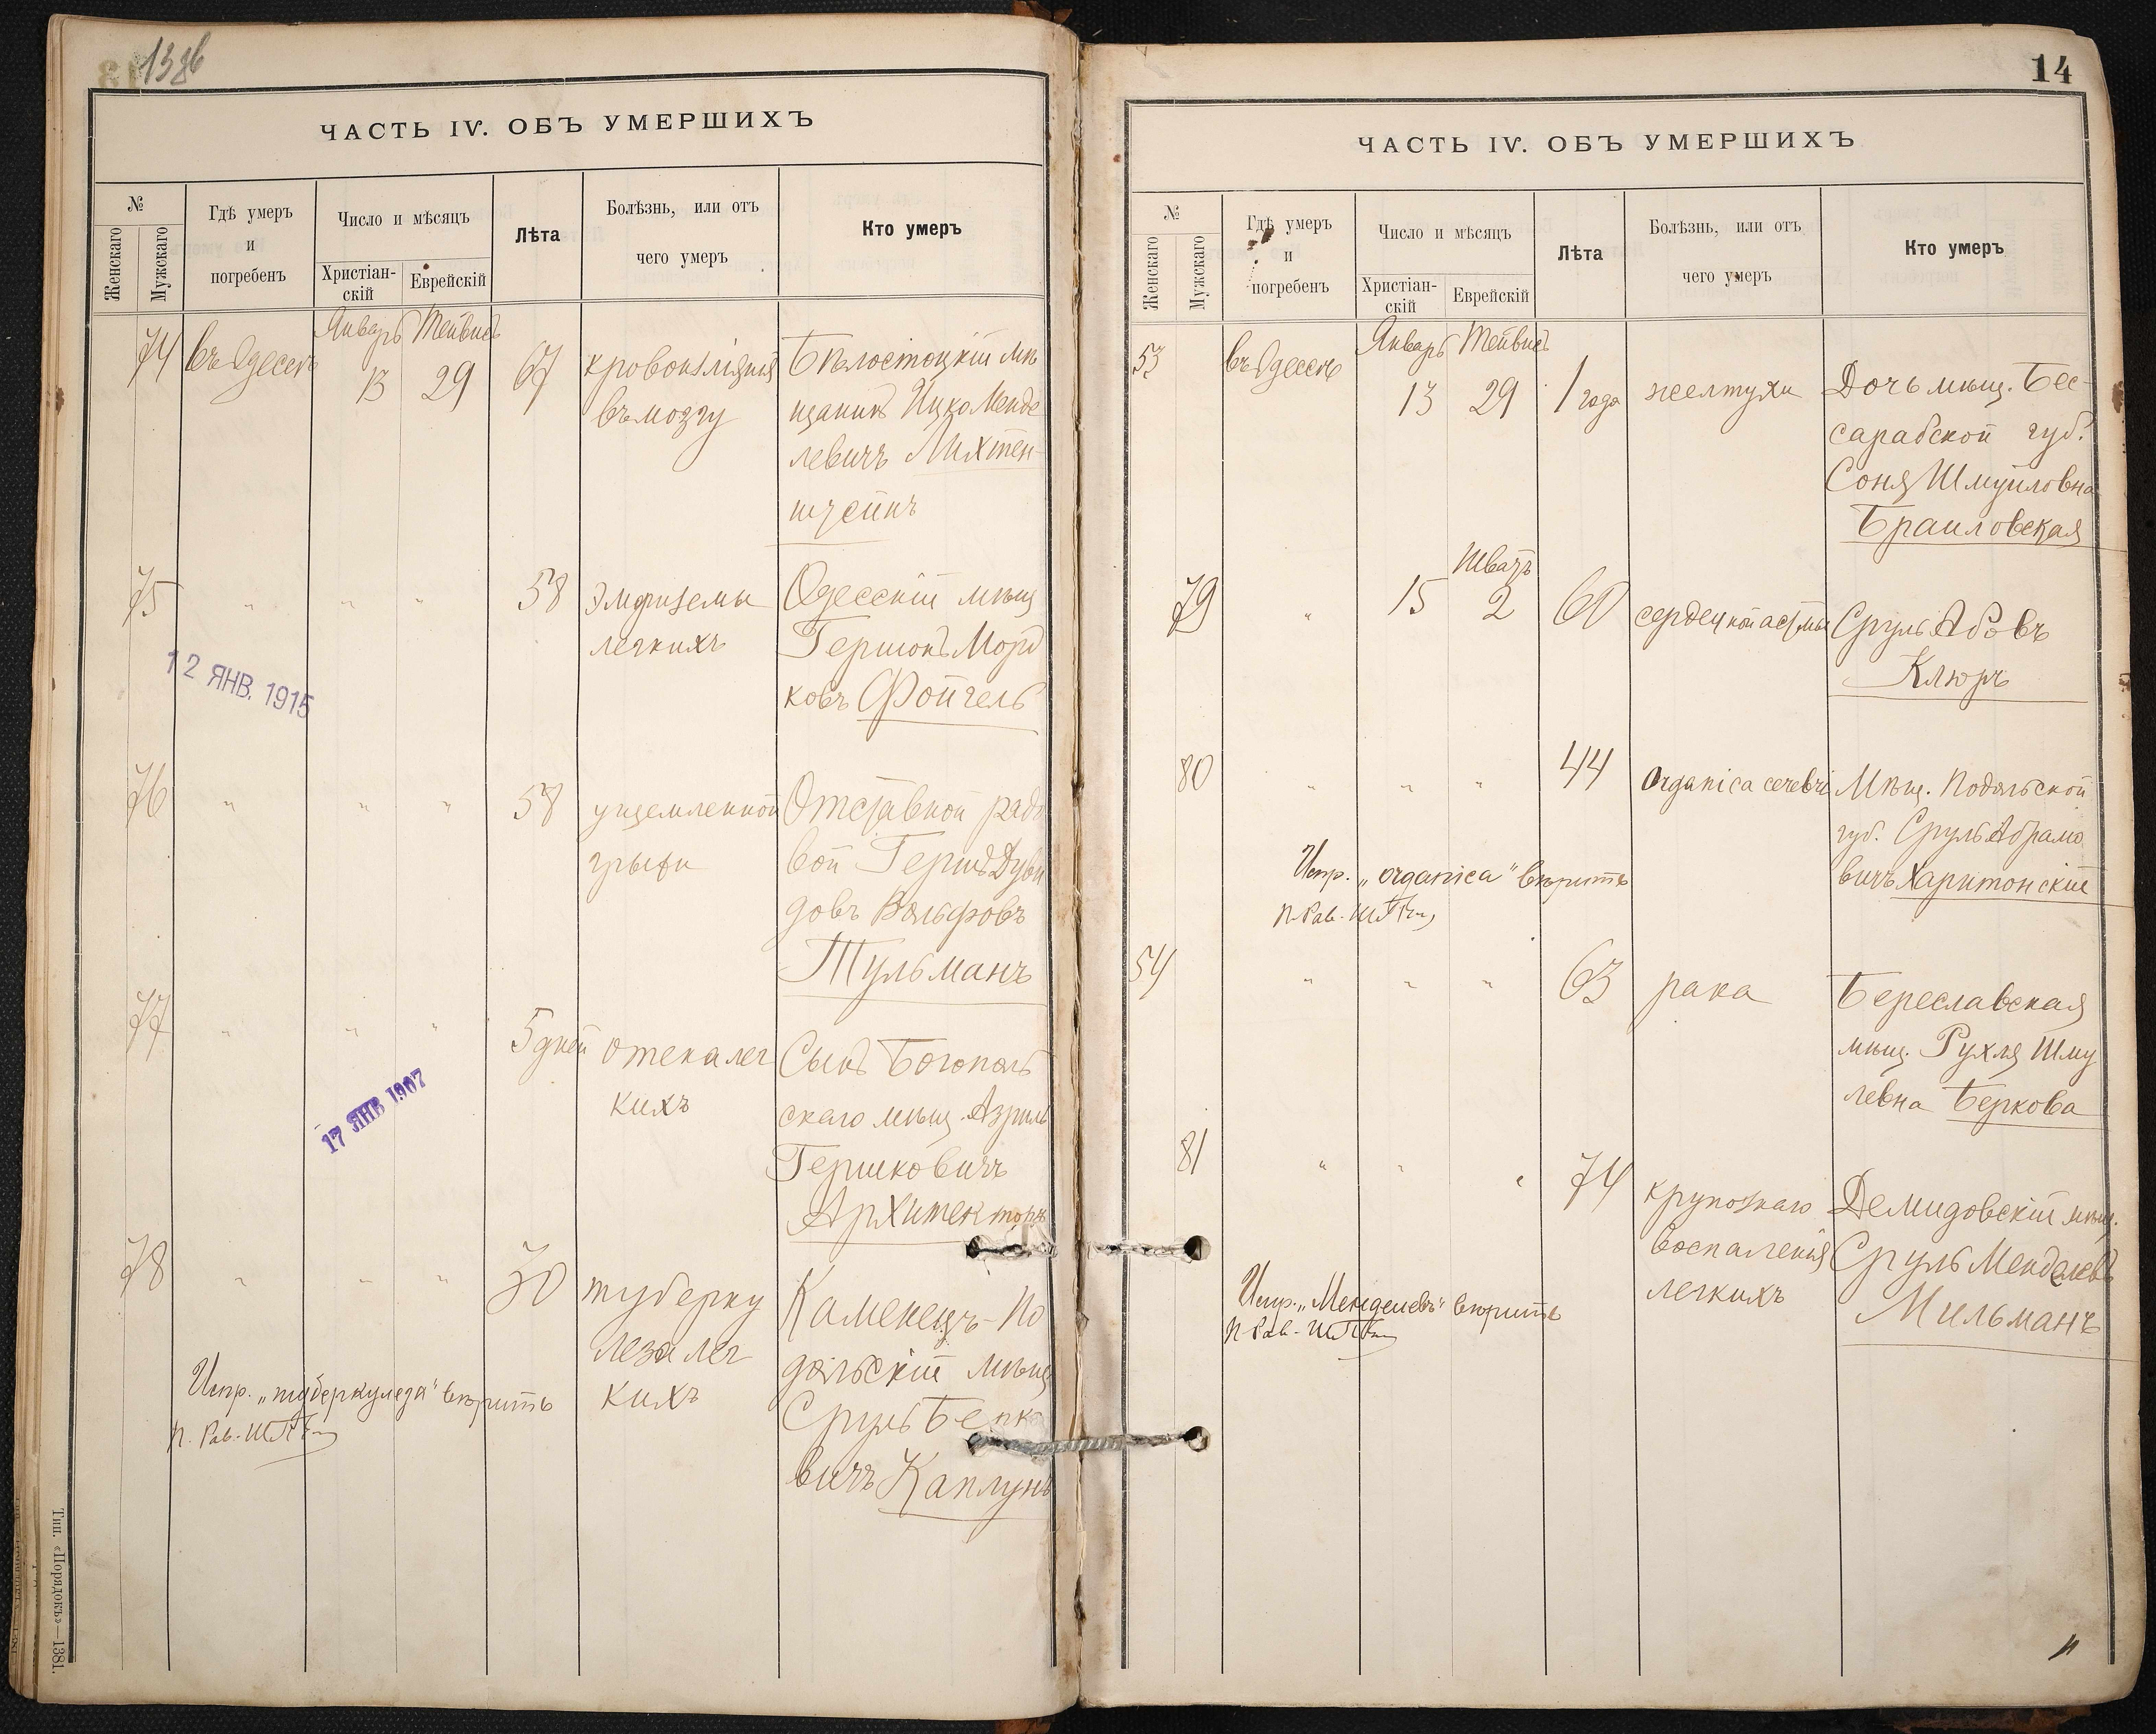 13об
ЧАСТЬ IV. ОБЪ УМЕРШИХЪ
№
Женскаго
Мужскаго
Гдѣ умеръ
и
погребенъ
Число и мѣсяцъ
Христіан-
скій
Еврейскій
Лѣта
Болѣзнь, или отъ
чего умеръ
Кто умеръ
Январь Тейвисъ
74 въ Одессѣ 13 29 67 кровоизліянія
въ мозгу
Бѣлостоцкій мѣ
щанинъ Ицко Менде
левичъ Лихтен-
штейнъ
75 " " " 58 Эмфиземы
легкихъ
Одесскій мѣщ
Гершонъ Морд
ковъ Фойгель
12 ЯНВ. 1915
76 " " " 58 ущемленной
грыжи
Отставной рядо
вой Гершъ Дуви
довъ Вольфовъ
Тульманъ
77 " " " 5 дней отека лег
кихъ
Сынъ Богополь
скаго мѣщ. Азриль
Гершковичъ
Архитекторъ
17 ЯНВ 1907
78 " " " 30 туберку
леза лег
кихъ
Каменецъ-По
дольскій мѣщ
Сруль Берко
вичъ Каплунъ
Испр. „туберкулеза" вѣрить
п. Рав.
Тип. «Порядокъ»—1381.
14
ЧАСТЬ IV. ОБЪ УМЕРШИХЪ
№
Женскаго
Мужскаго
Гдѣ умеръ
и
погребенъ
Число и мѣсяцъ
Христіан-
скій
Еврейскій
Лѣта
Болѣзнь, или отъ
чего умеръ
Кто умеръ
Январь Тейвисъ
53 въ Одессѣ 13 29 1 года желтухи
Дочь мѣщ. Бес-
сарабской губ.
Соня Шмуйловна
Браиловская
Шватъ
79 " 15 2 60 сердечной астмы
Сруль Абовъ
Клюръ
80 " " " 44 Organica cerebri
Мѣщ. Подольской
губ. Сруль Абрамо
вичъ Харитонскій
Испр. „organica" вѣрить
п. Рав.
54 " " " 63 рака
Береславская
мѣщ. Рухля Шму
левна Беркова
81 " " " 74 крупознаго
воспаленія
легкихъ
Демидовскій мѣщ.
Сруль Менделевъ
Мильманъ
Испр. „Менделевъ" вѣрить
п. Рав.